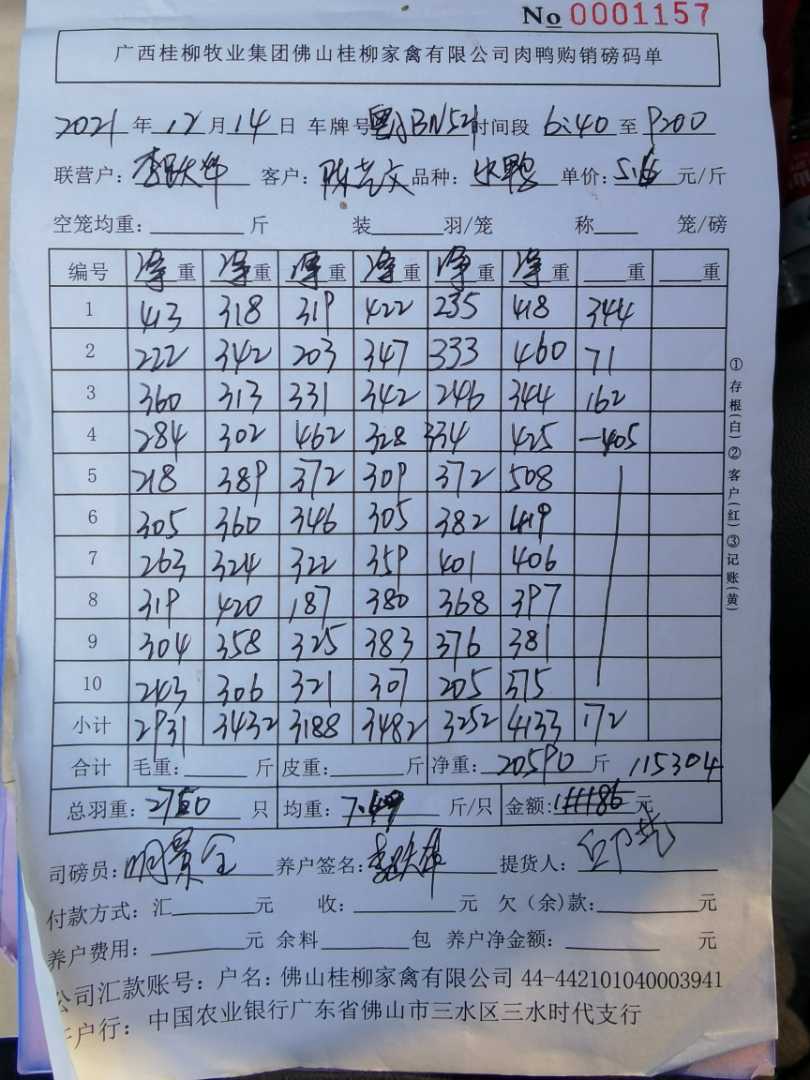 No 0001157
广西桂柳牧业集团佛山桂柳家禽有限公司肉鸭购销磅码单
2021 年 12 月 14 日 车牌号 时间段 6:40 至 9200
联营户: 客户: 品种: 水鸭 单价: 元/斤
空笼均重: 斤 装 羽/笼 称 笼/磅
编号 净重 净重 净重 净重 净重 净重 重 重
1 413 318 319 422 235 418 344
2 222 342 203 347 333 460 71
3 360 313 331 342 246 344 162
4 284 302 462 328 334 425 -405
5 218 389 372 309 372 508
6 305 360 346 305 382 419
7 263 324 322 359 401 406
8 319 420 187 380 368 397
9 304 358 325 383 376 381
10 243 306 321 307 205 375
小计 2931 3432 3188 3482 3252 4133 172
合计 毛重: 斤 皮重: 斤 净重: 20590 斤 115304
总羽重: 2750 只 均重: 7.49 斤/只 金额: 元
司磅员: 养户签名: 提货人:
付款方式: 汇 元 收: 元 欠(余)款: 元
养户费用: 元 余料 包 养户净金额: 元
公司汇款账号: 户名: 佛山桂柳家禽有限公司 44-442101040003941
户行: 中国农业银行广东省佛山市三水区三水时代支行
①存根(白)②客户(红)③记账(黄)